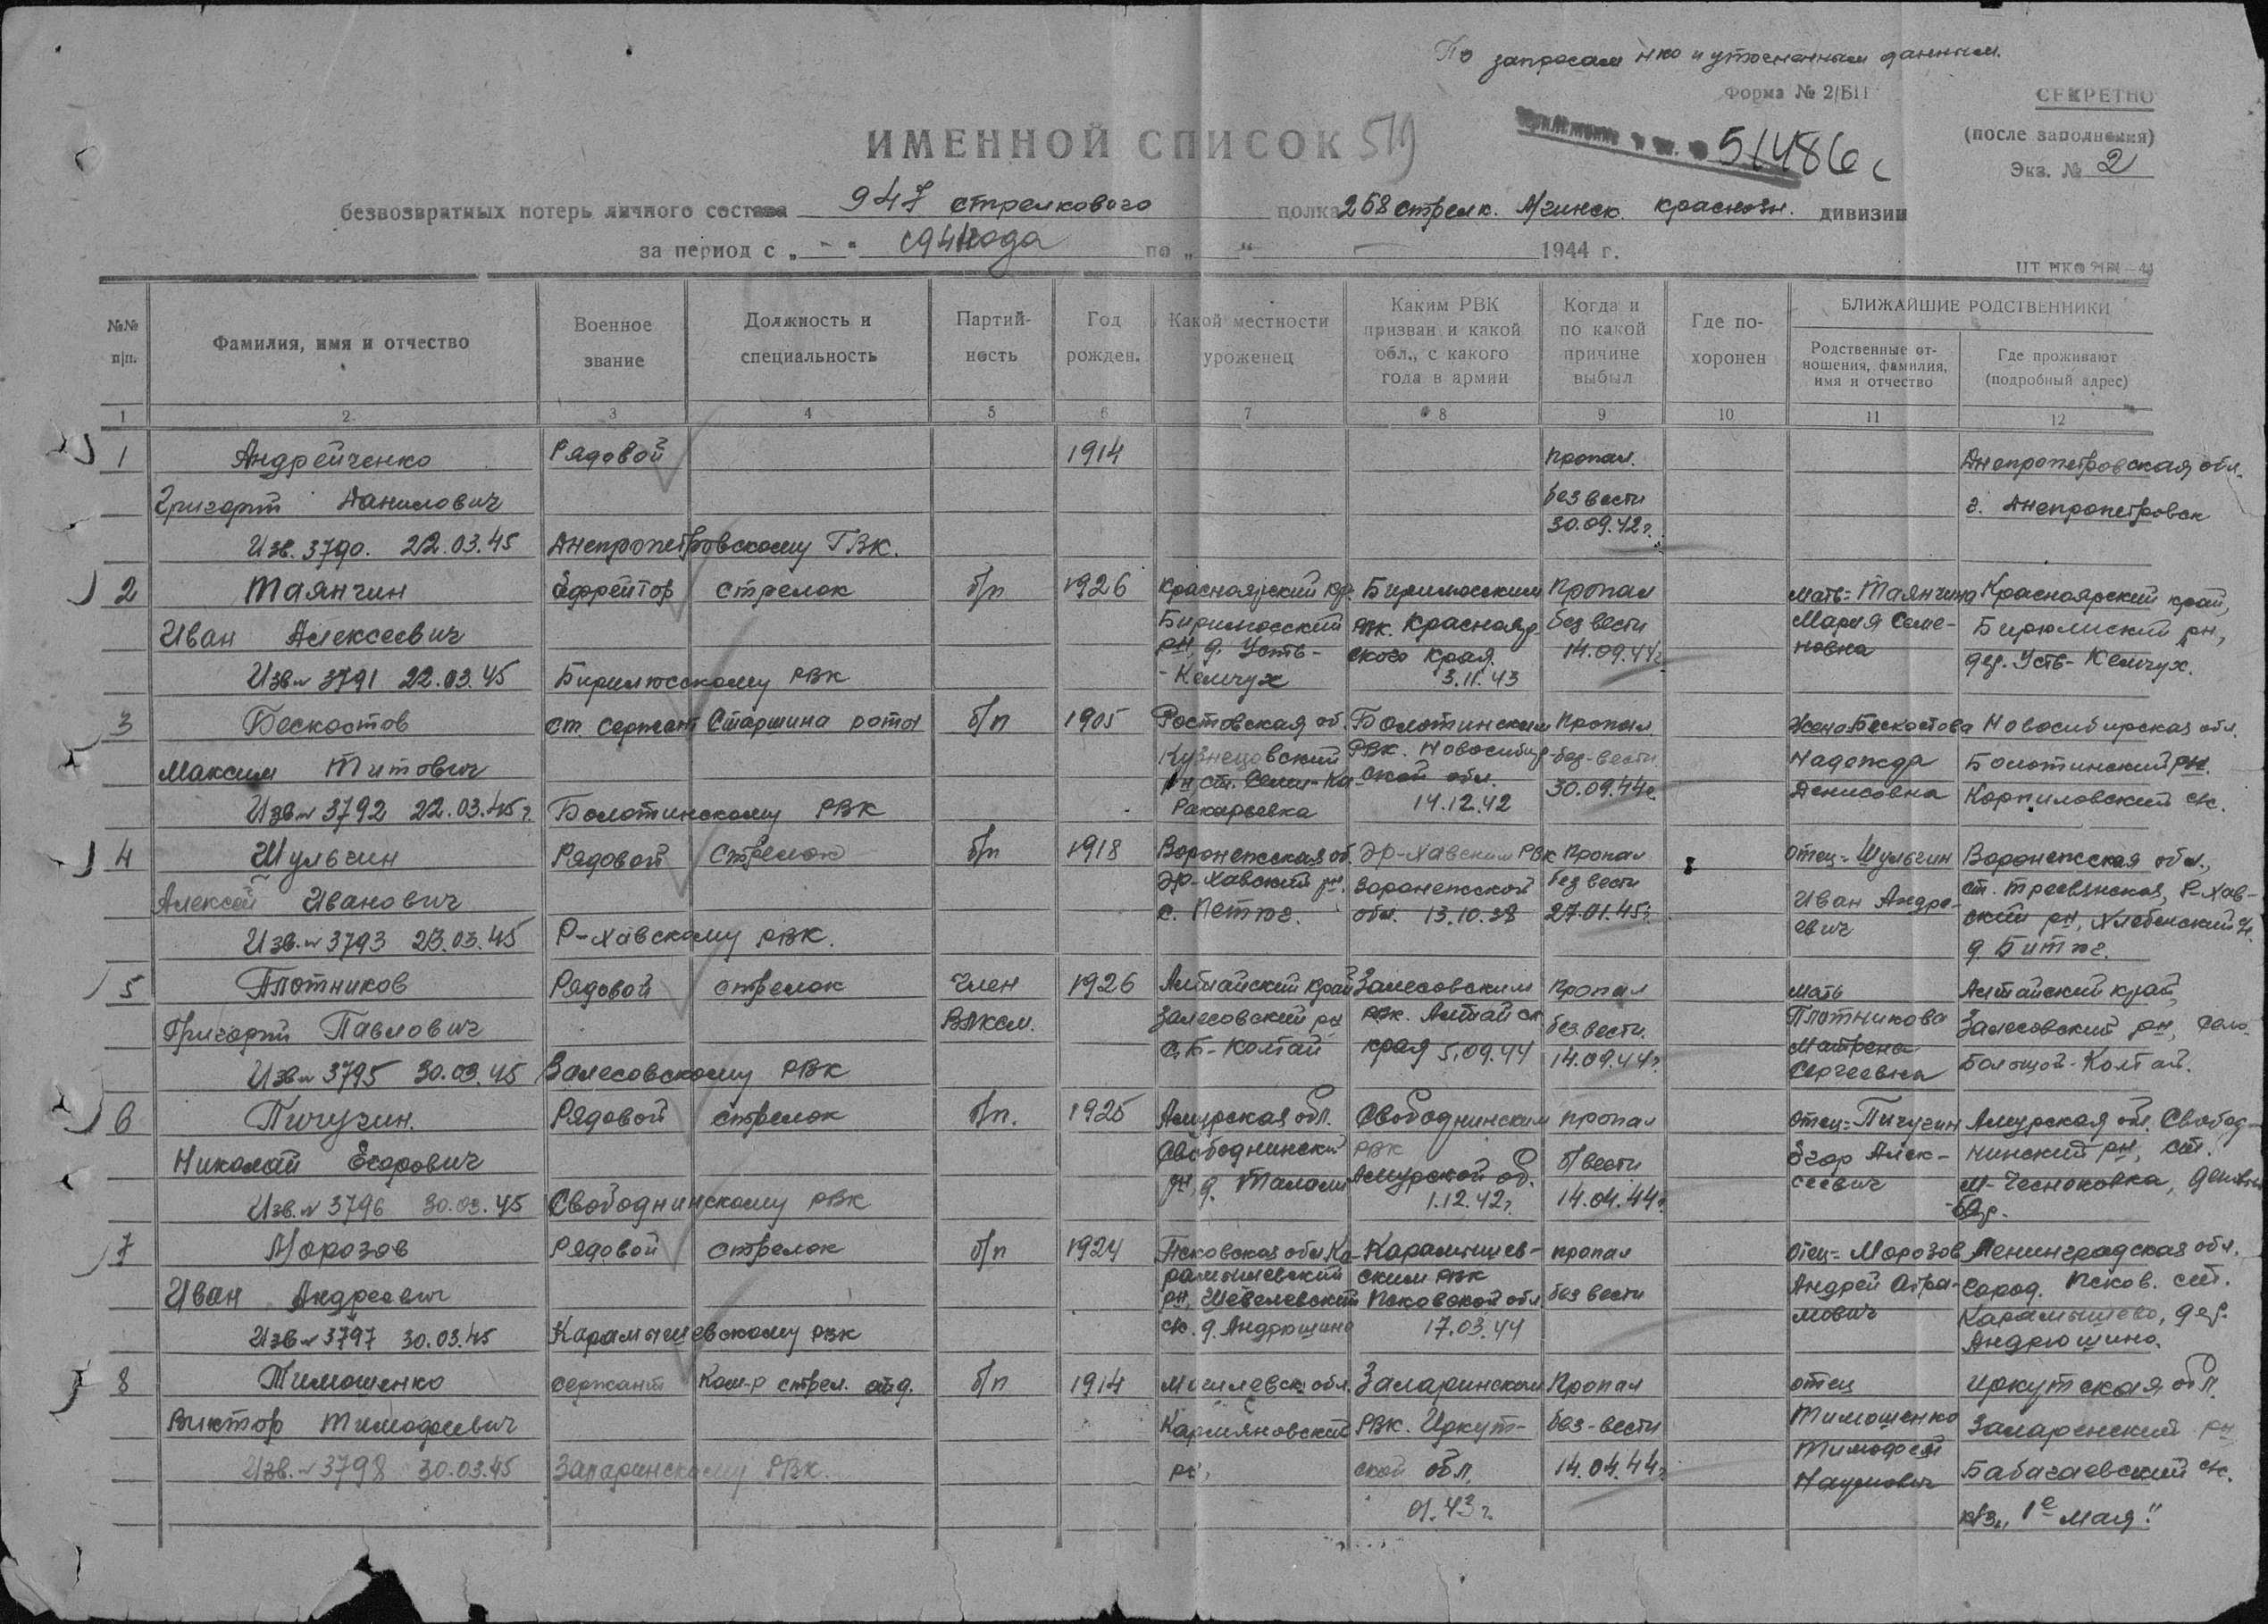 По запросам НКО и уточненным данным.
Форма № 2/БП
СЕКРЕТНО
(после заполнения)
Экз. № 2
ИМЕННОЙ СПИСОК 519
51486с
безвозвратных потерь личного состава 947 стрелкового полка 268 стрелк. Мгинск. краснозн. дивизии
за период с „ - " 1944 года по „ " 1944 г.
№№ п/п.
Фамилия, имя и отчество
Военное звание
Должность и специальность
Партий-ность
Год рожден.
Какой местности уроженец
Каким РВК призван и какой обл., с какого года в армии
Когда и по какой причине выбыл
Где по-хоронен
БЛИЖАЙШИЕ РОДСТВЕННИКИ
Родственные от-ношения, фамилия, имя и отчество
Где проживают (подробный адрес)
1 2 3 4 5 6 7 8 9 10 11 12
1 Андрейченко Рядовой 1914 Пропал. Днепропетровская обл.
Григорий Данилович без вести г. Днепропетровск
30.09.42г.
Изв. 3790. 22.03.45 Днепропетровскому ГВК.
2 Таянчин Ефрейтор стрелок б/п 1926 Красноярский кр. Бирилюсским Пропал мать=Таянчина Красноярский край,
Иван Алексеевич Бирилюсский РВК. Краснояр- без вести Мария Семе- Бирюлиский рн,
рн, д. Усть- ского края 14.09.44г. новна дер. Усть-Кемчух.
Изв № 3791 22.03.45 Бирилюсскому РВК -Кемчух 3.11.43
3 Бескостов ст. сержант Старшина роты б/п 1905 Ростовская об. Болотинским Пропал Жена Бескостова Новосибирская обл.
Максим Титович Кузнецовский РВК. Новосибир- без-вести Надежда Болотинский рн.
рн ст. Семи-Ка- ской обл. 30.09.44г Денисовна Корниловский с/с.
Изв № 3792 22.03.45г Болотинскому РВК Ракаровка 14.12.42
4 Шульгин Рядовой Стрелок б/п 1918 Воронежская об. Эр-Хавским РВК Пропал отец=Шульгин Воронежская обл.,
Алексей Иванович Эр-Хавский рн. Воронежской без вести Иван Андре- Р-Хав-
с. обл. 13.10.38 27.01.45г. евич ский рн,
Изв. № 3793 23.03.45 Р-Хавскому РВК. д Битюг.
5 Плотников Рядовой стрелок Член 1926 Алтайский край Залесовским пропал мать Алтайский край,
Григорий Павлович ВЛКСМ. Залесовский рн РВК. Алтайск без вести. Плотникова Залесовский рн, село
с. Б-Колтай края 5.09.44 14.09.44г. Матрена Большой-Колтай.
Изв № 3795 30.03.45 Залесовскому РВК Сергеевна
6 Пичугин. Рядовой стрелок б/п. 1925 Амурская обл. Свободнинским пропал Отец=Пичугин Амурская обл. Свобод-
Николай Егорович Свободнинский РВК б/вести Егор Алек- нинский рн, ст.
рн, д. Амурской об. 14.04.44г. сеевич М-Чесноковка,
Изв. № 3796 30.03.45 Свободнинскому РВК 1.12.42г.
7 Морозов Рядовой стрелок б/п 1924 Псковская обл Ка- Карамышев- пропал отец=Морозов Ленинградская обл.
рамышевский ским РВК
Иван Андреевич рн, Шевелевский Псковской обл без вести Андрей Абра- город. Псков. ст.
с/с. д. Андрюшино 17.03.44 мович Карамышево, дер.
Изв № 3797 30.03.45 Карамышевскому РВК Андрюшино.
8 Тимошенко сержант Ком-р стрел. отд. б/п 1914 Могилевск. обл. Заларинским Пропал отец Иркутская обл.
Виктор Тимофеевич Кармяновский РВК. Иркут- без-вести Тимошенко Заларенский рн
рн, ской обл. 14.04.44г. Тимофей Бабагаевский с/с.
Изв. № 3798 30.03.45 Заларинскому РВК. Наумович
01.43г. к/з „1е мая"